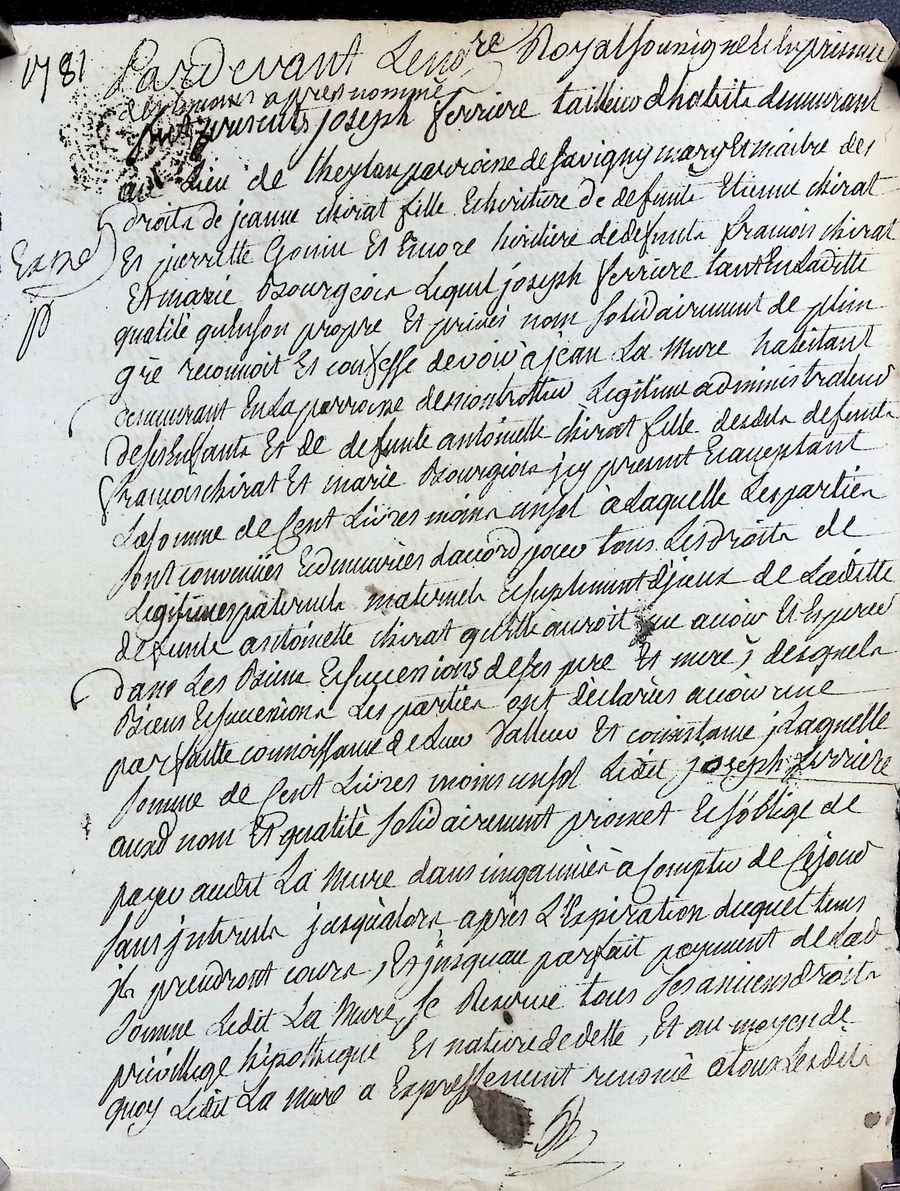 1781
Pardevant Lenore Royal soussigné et en presence
des temoins apres nommé
furent presents joseph ferriere tailleur dhabits demeurant
au Lieu de theylon parroisse de savigny mary et maitre des
droits de jeanne chirat fille et heritiere de defunts Etienne chirat
Et pierrette Gonin Et Encore heritiere de defunts françois chirat
Expé
Et marie Bourgeois Lequel joseph ferriere tant En Laditte
qualité qu'en son propre Et privé nom solidairement de plein
gré reconnoit Et confesse devoir a jean La Mure habitant
demeurant En La parroisse de montrottier Legitime administrateur
de ses Enfants Et de defunte antoinette chirat fille desdits defunts
francois chirat Et marie Bourgeois icy present Et acceptant
La somme de Cent Livres moins un sol à Laquelle Les parties
sont convenües Et demeurées daccord pour tous Les droits de
Legitimes paternels maternels Et suplement d'jceux de Laditte
defunte antoinette chirat qu'elle auroit pue avoir Et Esperer
dans Les Biens Et successions de ses pere Et mere, desquels
Biens Et successions Les parties ont déclarées avoir une
parfaitte connoissance de Leur valleur Et consistance, Laquelle
somme de Cent Livres moins un sol Ledit joseph ferriere
auxd nom Et qualité solidairement promet Et s'oblige de
payer audit La Mure dans cinq années à Compter de Cejour
sans jnterests jusqu'alors après L'Expiration duquel tems
jls prendront cours, Et jusquau parfait payment de Lad
somme Ledit La Mure, se Reserve tous ses anciens droits
privillege hipotheque Et nature de dette, Et au moyen de
quoy Ledit La Mure a Expressement renoncé a tous Lesdits